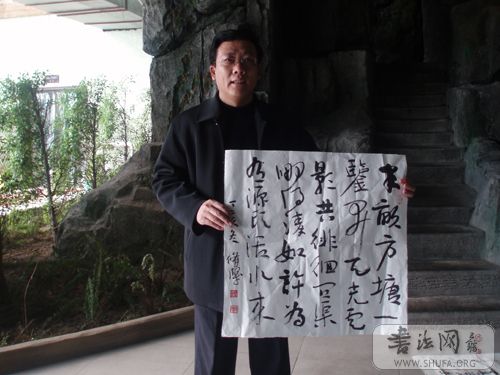 半畝方塘一
鑒開天光雲
影共徘徊問渠
那得清如許為
有源頭活水來
丁亥冬
書法网
WWW.SHUFA.ORG